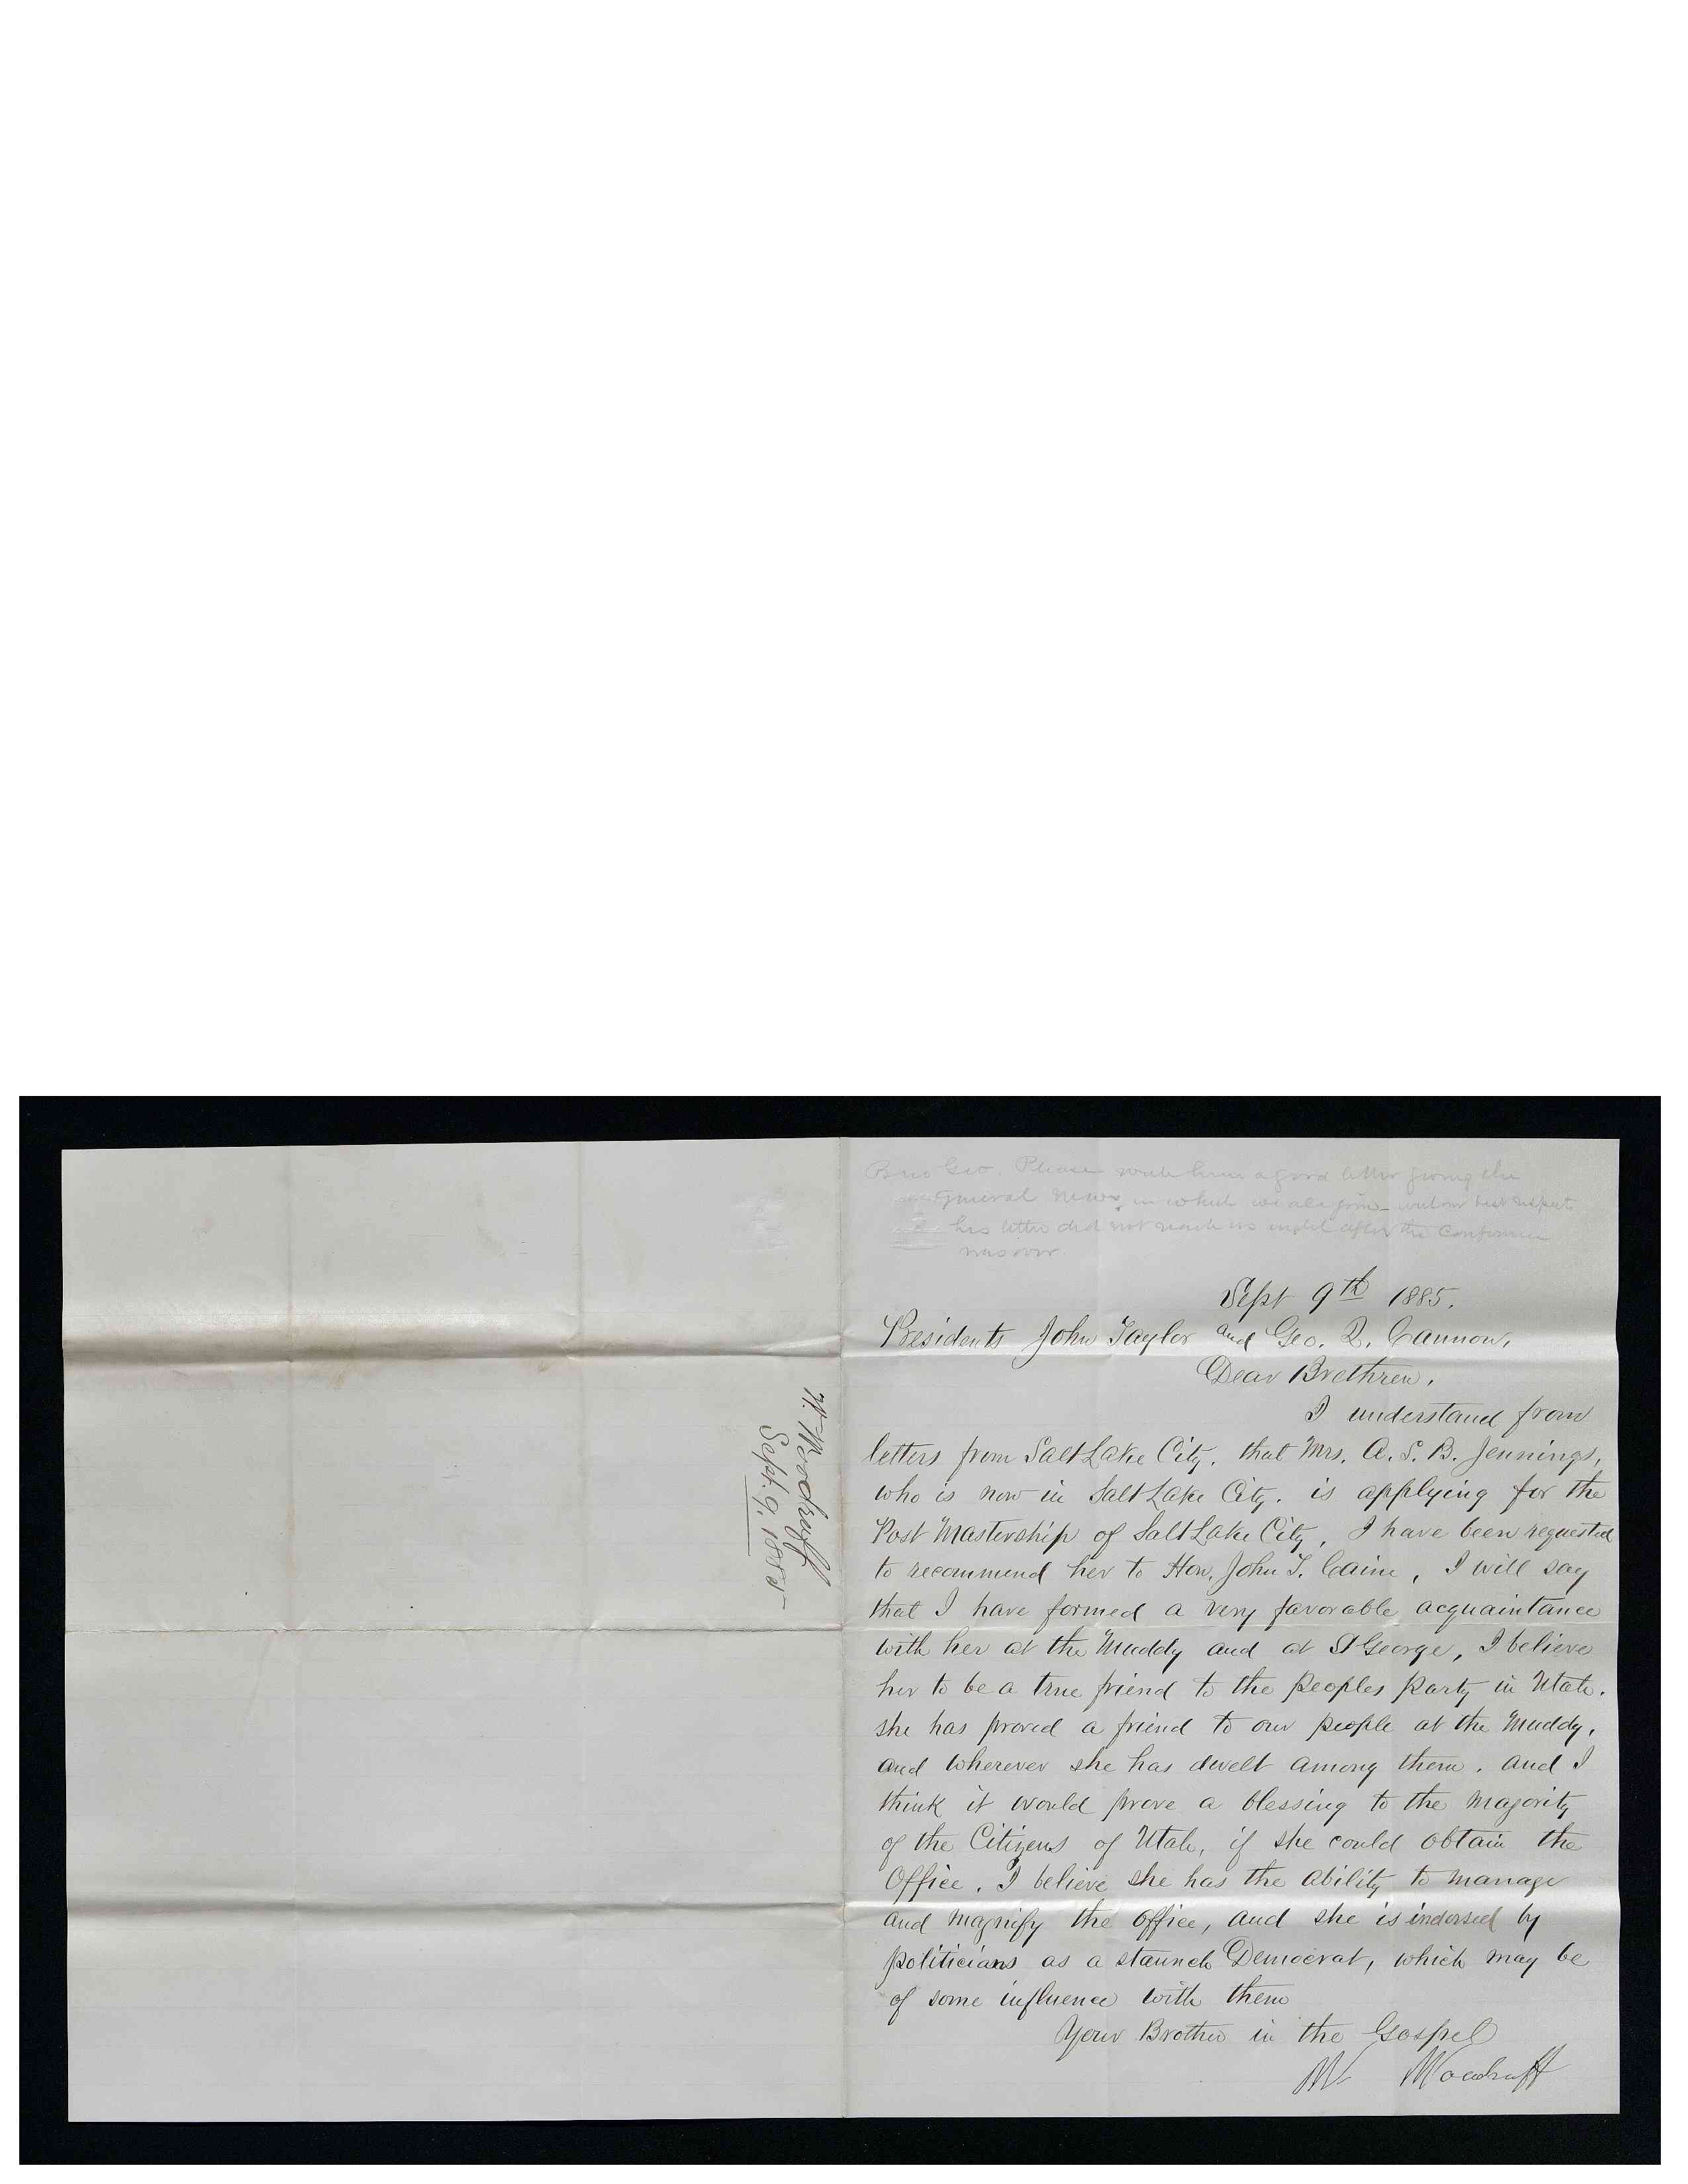 Bro Geo. Please write him a good letter giving the
general news, in which we all join with our best respects
his letter did not reach us until after the Conference
was over
Sept 9th 1885.
Presidents John Taylor and Geo. Q. Cannon,
Dear Brethren,
I understand from
letters from Salt Lake City, that Mrs. A. S. B. Jennings,
who is now in Salt Lake City. is applying for the
Post Mastership of Salt Lake City, I have been requested
to recommend her to Hon. John T. Caine, I will say
that I have formed a very favorable acquaintance
with her at the Muddy and at St George, I believe
her to be a true friend to the Peoples Party in Utah.
she has proved a friend to our people at the Muddy,
and wherever she has dwelt among them. and I
think it would prove a blessing to the majority
of the Citizens of Utah, if she could obtain the
Office. I believe she has the ability to manage
and magnify the office, and she is indorsed by
politicians as a staunch Democrat, which may be
of some influence with them
Your Brother in the Gospel
W Woodruff
W. Woodruff
Sept. 9, 1885